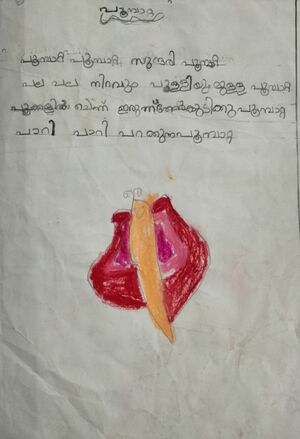 പൂമ്പാറ്റ
പൂമ്പാറ്റ പൂമ്പാറ്റ സുന്ദരി പൂമ്പാറ്റ
പല പല നിറവും പുള്ളിയുമുള്ള പൂമ്പാറ്റ
പൂക്കളിൽ ചെന്ന് ഇരുന്ന് തേൻകുടിക്കുംപൂമ്പാറ്റ
പാറി പാറി പറക്കുന്നപൂമ്പാറ്റ